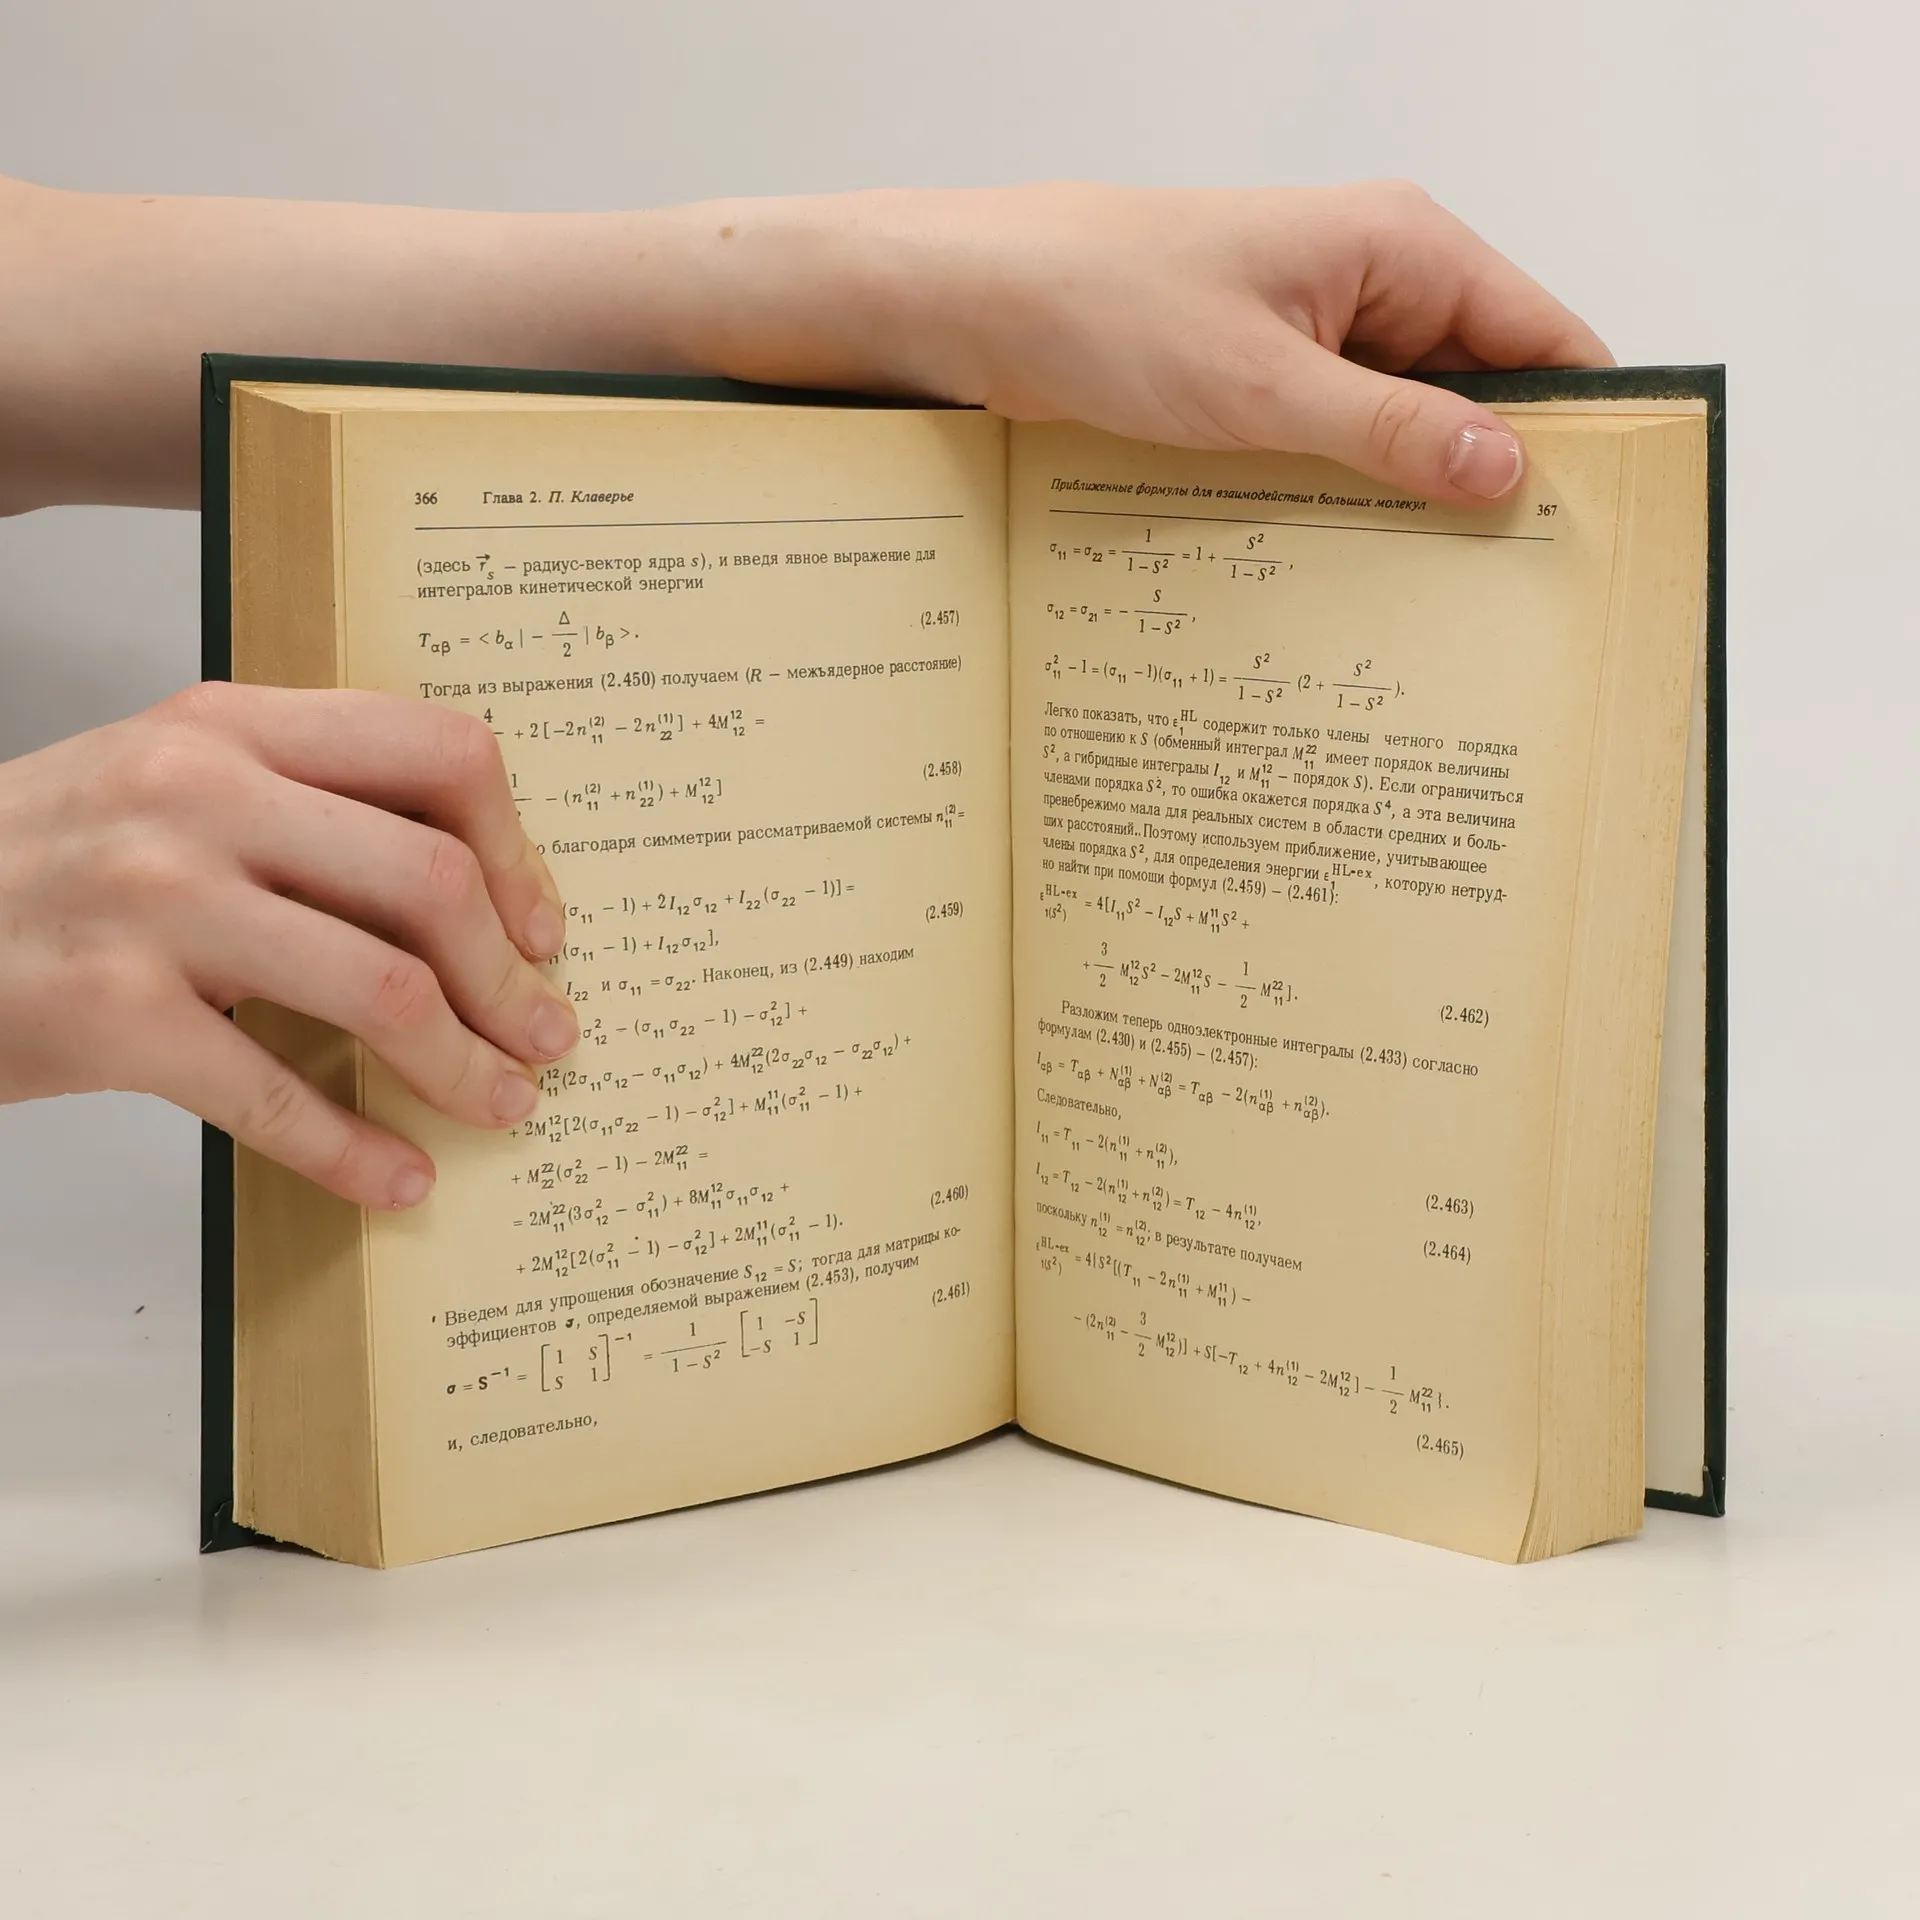 366 Глава 2. П. Клаверье
(здесь r⃗_s — радиус-вектор ядра s), и введя явное выражение для
интегралов кинетической энергии
T_αβ = < b_α | − Δ/2 | b_β >. (2.457)
Тогда из выражения (2.450) получаем (R — межъядерное расстояние)
4 + 2 [−2n_11^(2) − 2n_22^(1)] + 4M_12^12 =
1 − (n_11^(2) + n_22^(1)) + M_12^12] (2.458)
благодаря симметрии рассматриваемой системы n_11^(2) =
(σ_11 − 1) + 2I_12 σ_12 + I_22 (σ_22 − 1)] =
(σ_11 − 1) + I_12 σ_12], (2.459)
I_22 и σ_11 = σ_22. Наконец, из (2.449) находим
σ_12^2 − (σ_11 σ_22 − 1) − σ_12^2] +
M_11^12 (2σ_11 σ_12 − σ_11 σ_12) + 4M_12^22 (2σ_22 σ_12 − σ_22 σ_12) +
+ 2M_12^12 [2(σ_11 σ_22 − 1) − σ_12^2] + M_11^11 (σ_11^2 − 1) +
+ M_22^22 (σ_22^2 − 1) − 2M_11^22 =
= 2M_11^22 (3σ_12^2 − σ_11^2) + 8M_11^12 σ_11 σ_12 +
+ 2M_12^12 [2(σ_11^2 − 1) − σ_12^2] + 2M_11^11 (σ_11^2 − 1). (2.460)
Введем для упрощения обозначение S_12 = S; тогда для матрицы ко-
эффициентов σ, определяемой выражением (2.453), получим
σ = S^−1 = [1 S; S 1]^−1 = 1/(1 − S^2) [1 −S; −S 1] (2.461)
и, следовательно,
Приближенные формулы для взаимодействия больших молекул 367
σ_11 = σ_22 = 1/(1 − S^2) = 1 + S^2/(1 − S^2),
σ_12 = σ_21 = − S/(1 − S^2),
σ_11^2 − 1 = (σ_11 − 1)(σ_11 + 1) = S^2/(1 − S^2) (2 + S^2/(1 − S^2)).
Легко показать, что ε_1^HL содержит только члены четного порядка
по отношению к S (обменный интеграл M_11^22 имеет порядок величины
S^2, а гибридные интегралы I_12 и M_11^12 — порядок S). Если ограничиться
членами порядка S^2, то ошибка окажется порядка S^4, а эта величина
пренебрежимо мала для реальных систем в области средних и боль-
ших расстояний. Поэтому используем приближение, учитывающее
члены порядка S^2, для определения энергии ε_1^HL-ex, которую нетруд-
но найти при помощи формул (2.459) — (2.461):
ε_1(S^2)^HL-ex = 4[I_11 S^2 − I_12 S + M_11^11 S^2 +
+ 3/2 M_12^12 S^2 − 2M_11^12 S − 1/2 M_11^22]. (2.462)
Разложим теперь одноэлектронные интегралы (2.433) согласно
формулам (2.430) и (2.455) — (2.457):
I_αβ = T_αβ + N_αβ^(1) + N_αβ^(2) = T_αβ − 2(n_αβ^(1) + n_αβ^(2)).
Следовательно,
I_11 = T_11 − 2(n_11^(1) + n_11^(2)), (2.463)
I_12 = T_12 − 2(n_12^(1) + n_12^(2)) = T_12 − 4n_12^(1), (2.464)
поскольку n_12^(1) = n_12^(2); в результате получаем
ε_1(S^2)^HL-ex = 4{S^2[(T_11 − 2n_11^(1) + M_11^11) −
− (2n_11^(2) − 3/2 M_12^12)] + S[−T_12 + 4n_12^(1) − 2M_12^12] − 1/2 M_11^22}.
(2.465)